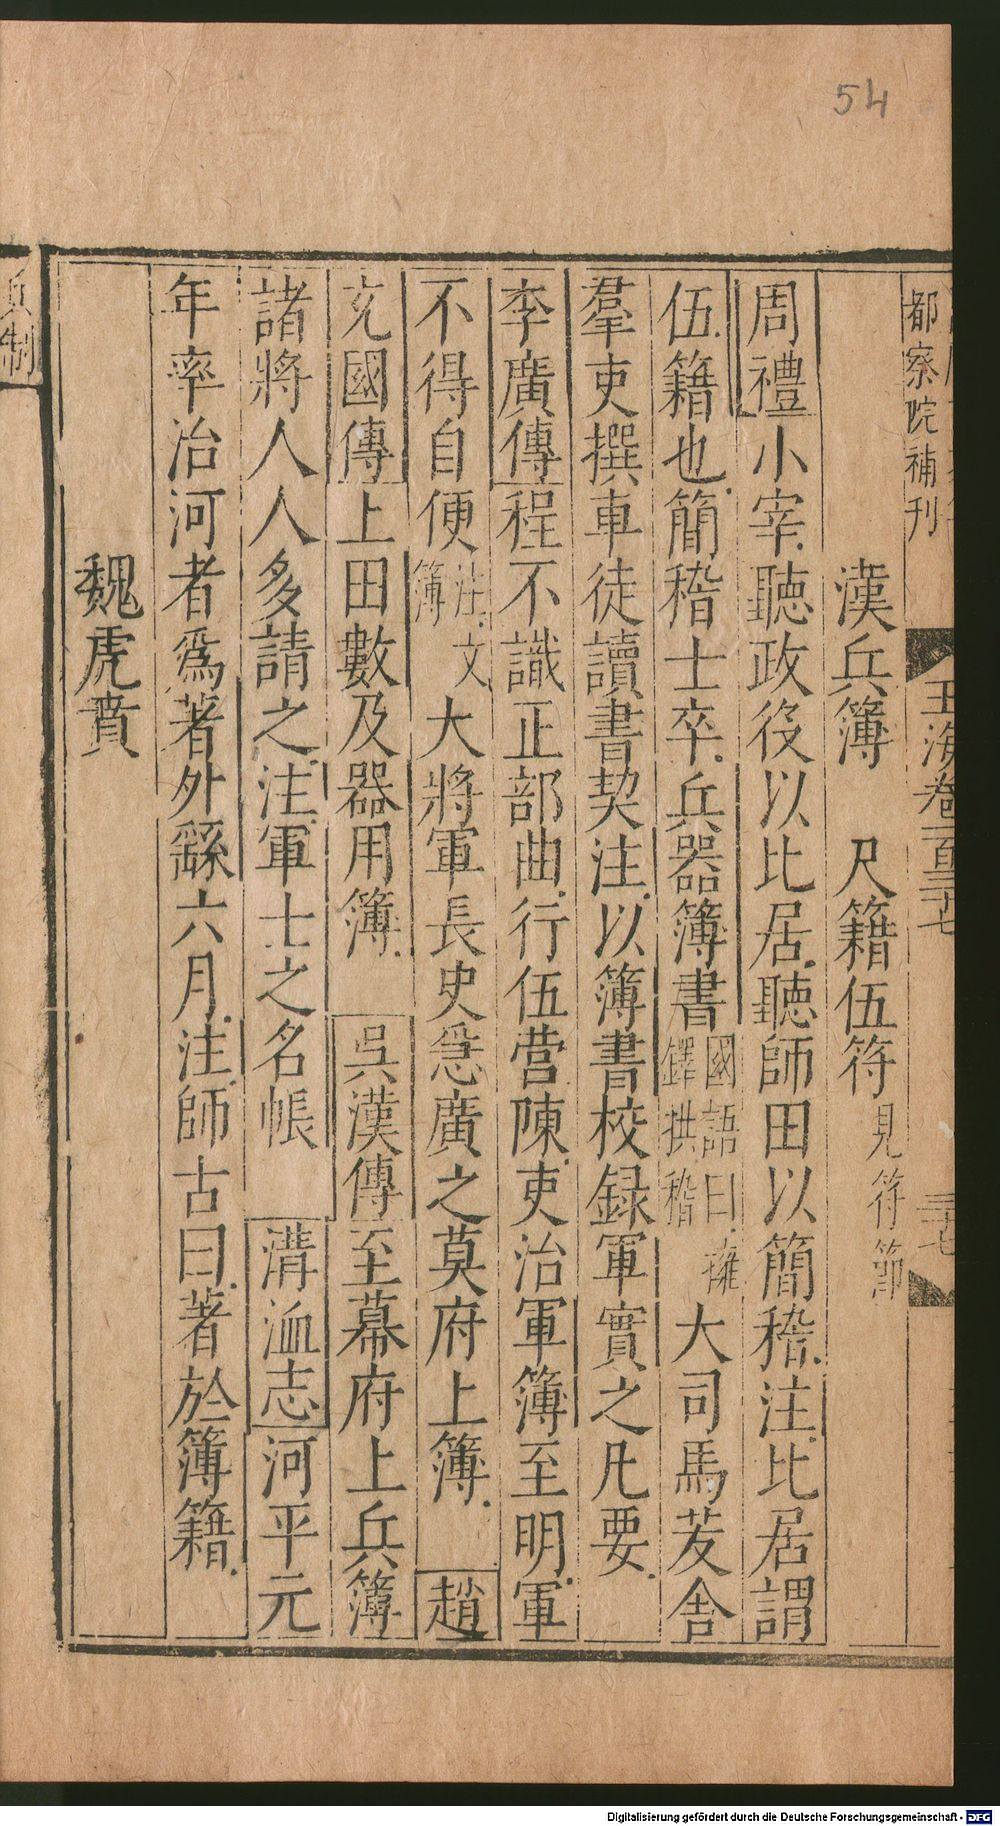 54
都察院補刊
玉海卷一百三十七
三十七
漢兵簿　尺籍伍符見符節
周禮小宰聽政役以比居聽師田以簡稽注比居謂
伍籍也簡稽士卒兵器簿書國語曰擁鐸拱稽大司馬茇舍
羣吏撰車徒讀書契注以簿書校録軍實之凡要
李廣傳程不識正部曲行伍營陳吏治軍簿至明軍
不得自便注文簿大將軍長史急廣之莫府上簿　趙
充國傳上田數及器用簿　吳漢傳至幕府上兵簿
諸將人人多請之注軍士之名帳　溝洫志河平元
年率治河者爲著外繇六月注師古曰著於簿籍
魏虎賁
兵制
Digitalisierung gefördert durch die Deutsche Forschungsgemeinschaft - DFG